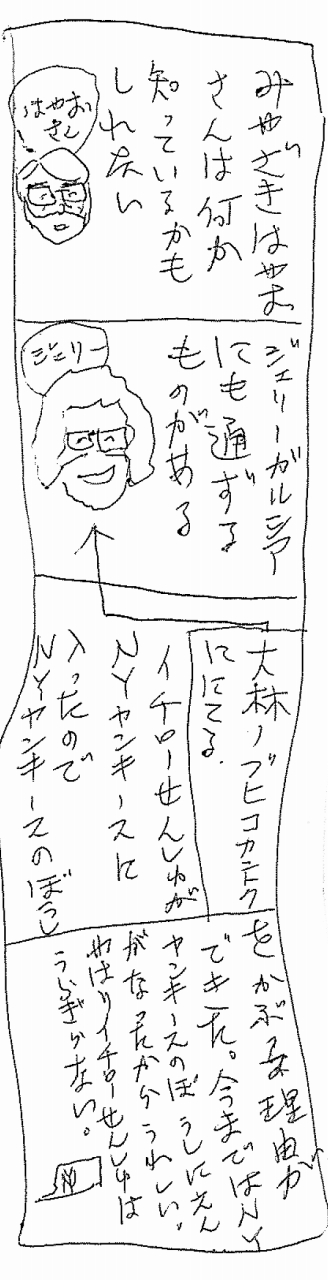 みやざきはやお
さんは何か
知っているかも
しれない
はやお
さん
ジェリーガルシア
にも通ずる
ものがある
ジェリー
大林ノブヒコカントク
ににてる.
イチローせんしゅが
NYヤンキースに
入ったので
NYヤンキースのぼうし
をかぶる理由が
できた。今まではNY
ヤンキースのぼうしにえん
がなったからうれしい。
やはりイチローせんしゅは
うらぎらない。
N